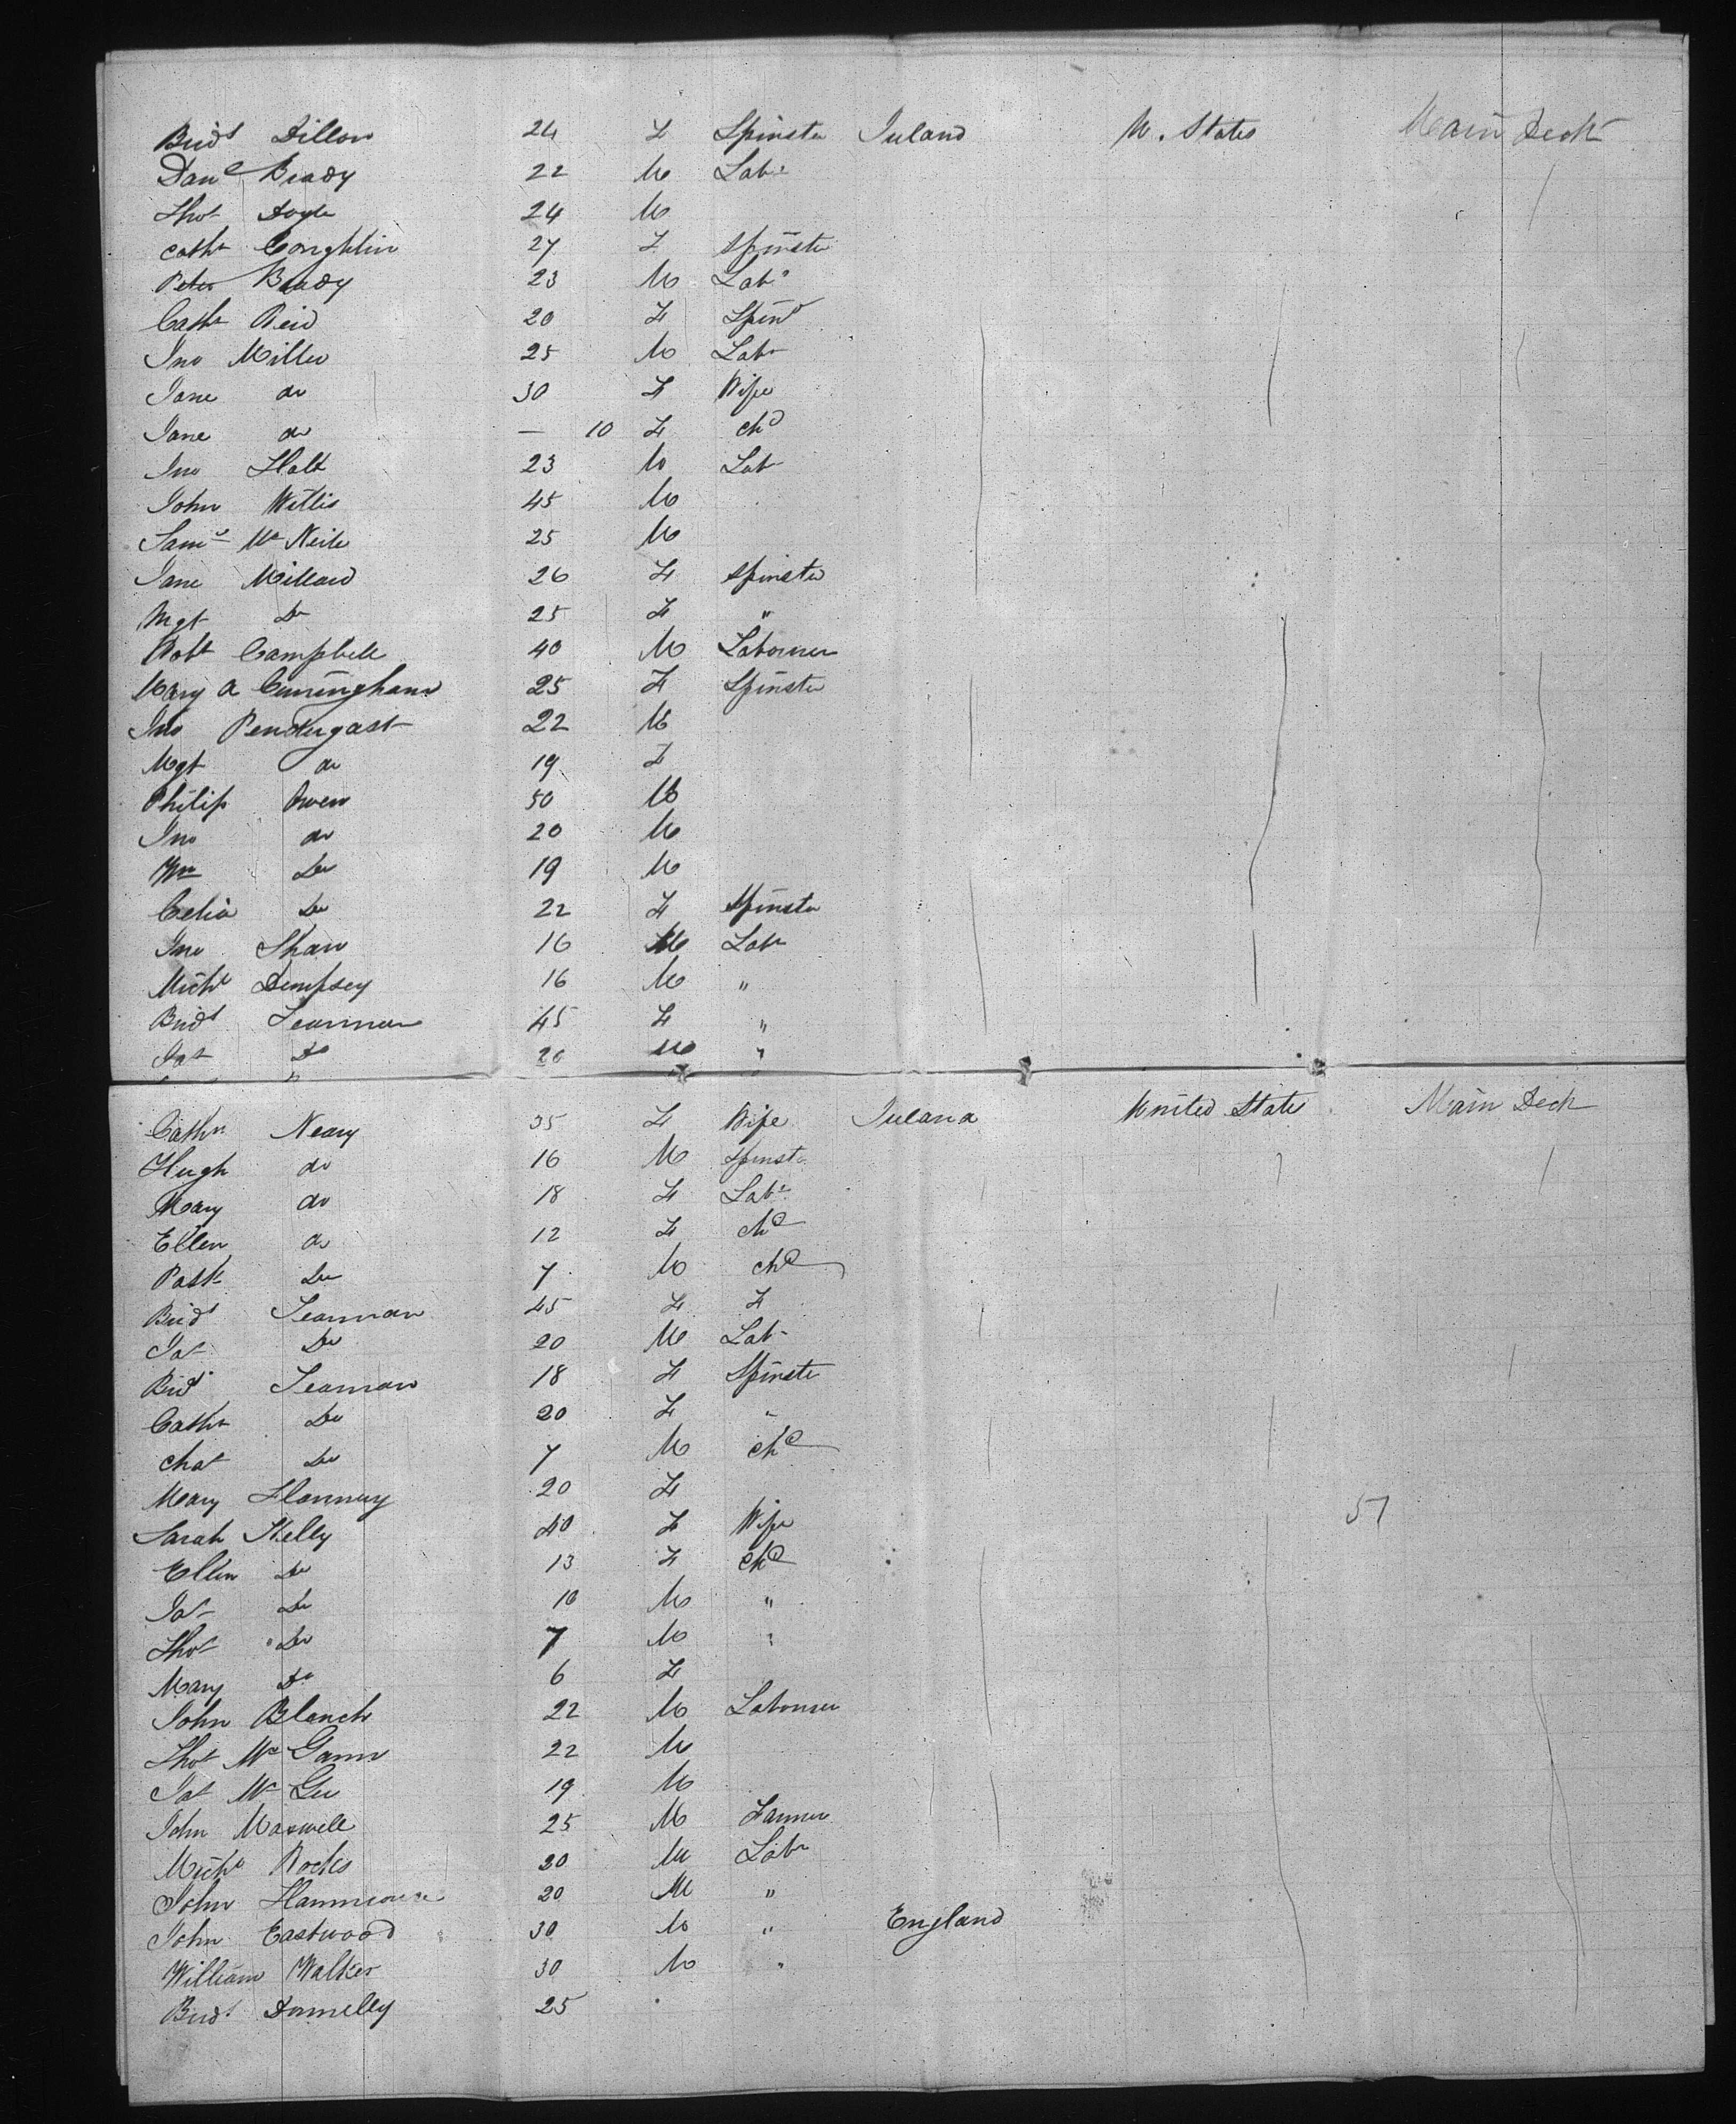 Bridt Dillon 24 F Spinster Ireland U. States Main Deck
Danl Brady 22 M Labr
Thos Doyle 24 M
Cathe Coughlin 27 F Spinster
Peter Brady 23 M Labr
Cathe Reid 20 F Spinr
Jno Miller 25 M Labr
Jane do 30 F Wife
Jane do — 10 F chd
Jno Holt 23 M Labr
John Willis 45 M
Saml Mc Neile 25 M
Jane Millard 26 F Spinster
Mgt Do 25 F "
Robt Campbell 40 M Labourer
Mary A Cuningham 25 F Spinster
Jno Pendergast 22 M
Mgt do 19 F
Philip Owen 50 M
Jno do 20 M
Wm Do 19 M
Celia Do 22 F Spinster
Jno Shaw 16 M Labr
Michl Dempsey 16 M "
Bridt 45 F "
Jas Do 20 M "
Cathn Neary 35 F Wife Ireland United States Main Deck
Hugh do 16 M Spinst
Mary do 18 F Labr
Ellen do 12 F chd
Patk Do 7 M chd
Bridt Seaman 45 F F
Jas Do 20 M Labr
Bridt Seaman 18 F Spinster
Cathe Do 20 F "
Chas Do 7 M chd
Mary Flannery 20 F
57
Sarah Kelly 40 F Wife
Ellen Do 13 F chd
Jas Do 10 M "
Thos Do 7 M "
Mary Do 6 F
John Blanch 22 M Labourer
Thos Mc Gann 22 M
Jas Mc Gee 19 M
John Maxwell 25 M Farmer
Michl Roches 20 M Labr
John 20 M "
John Eastwood 30 M " England
William Walker 30 M "
Bridt Donnelly 25